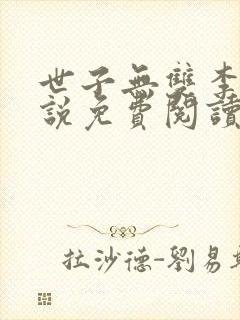 世子無雙李
說免費閱讀
拉沙德-劉易斯